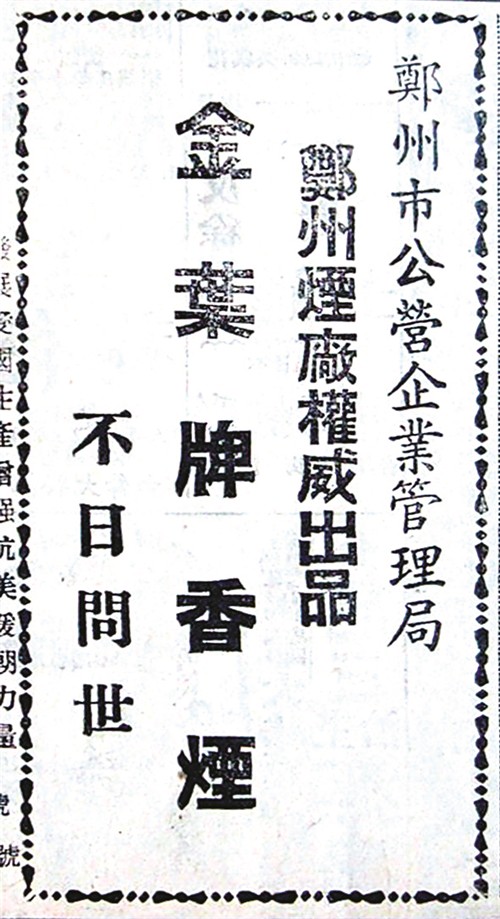 鄭州市公營企業管理局
鄭州煙廠權威出品
金葉牌香煙
不日問世
發展愛國生產增强抗美援朝力量
號
號